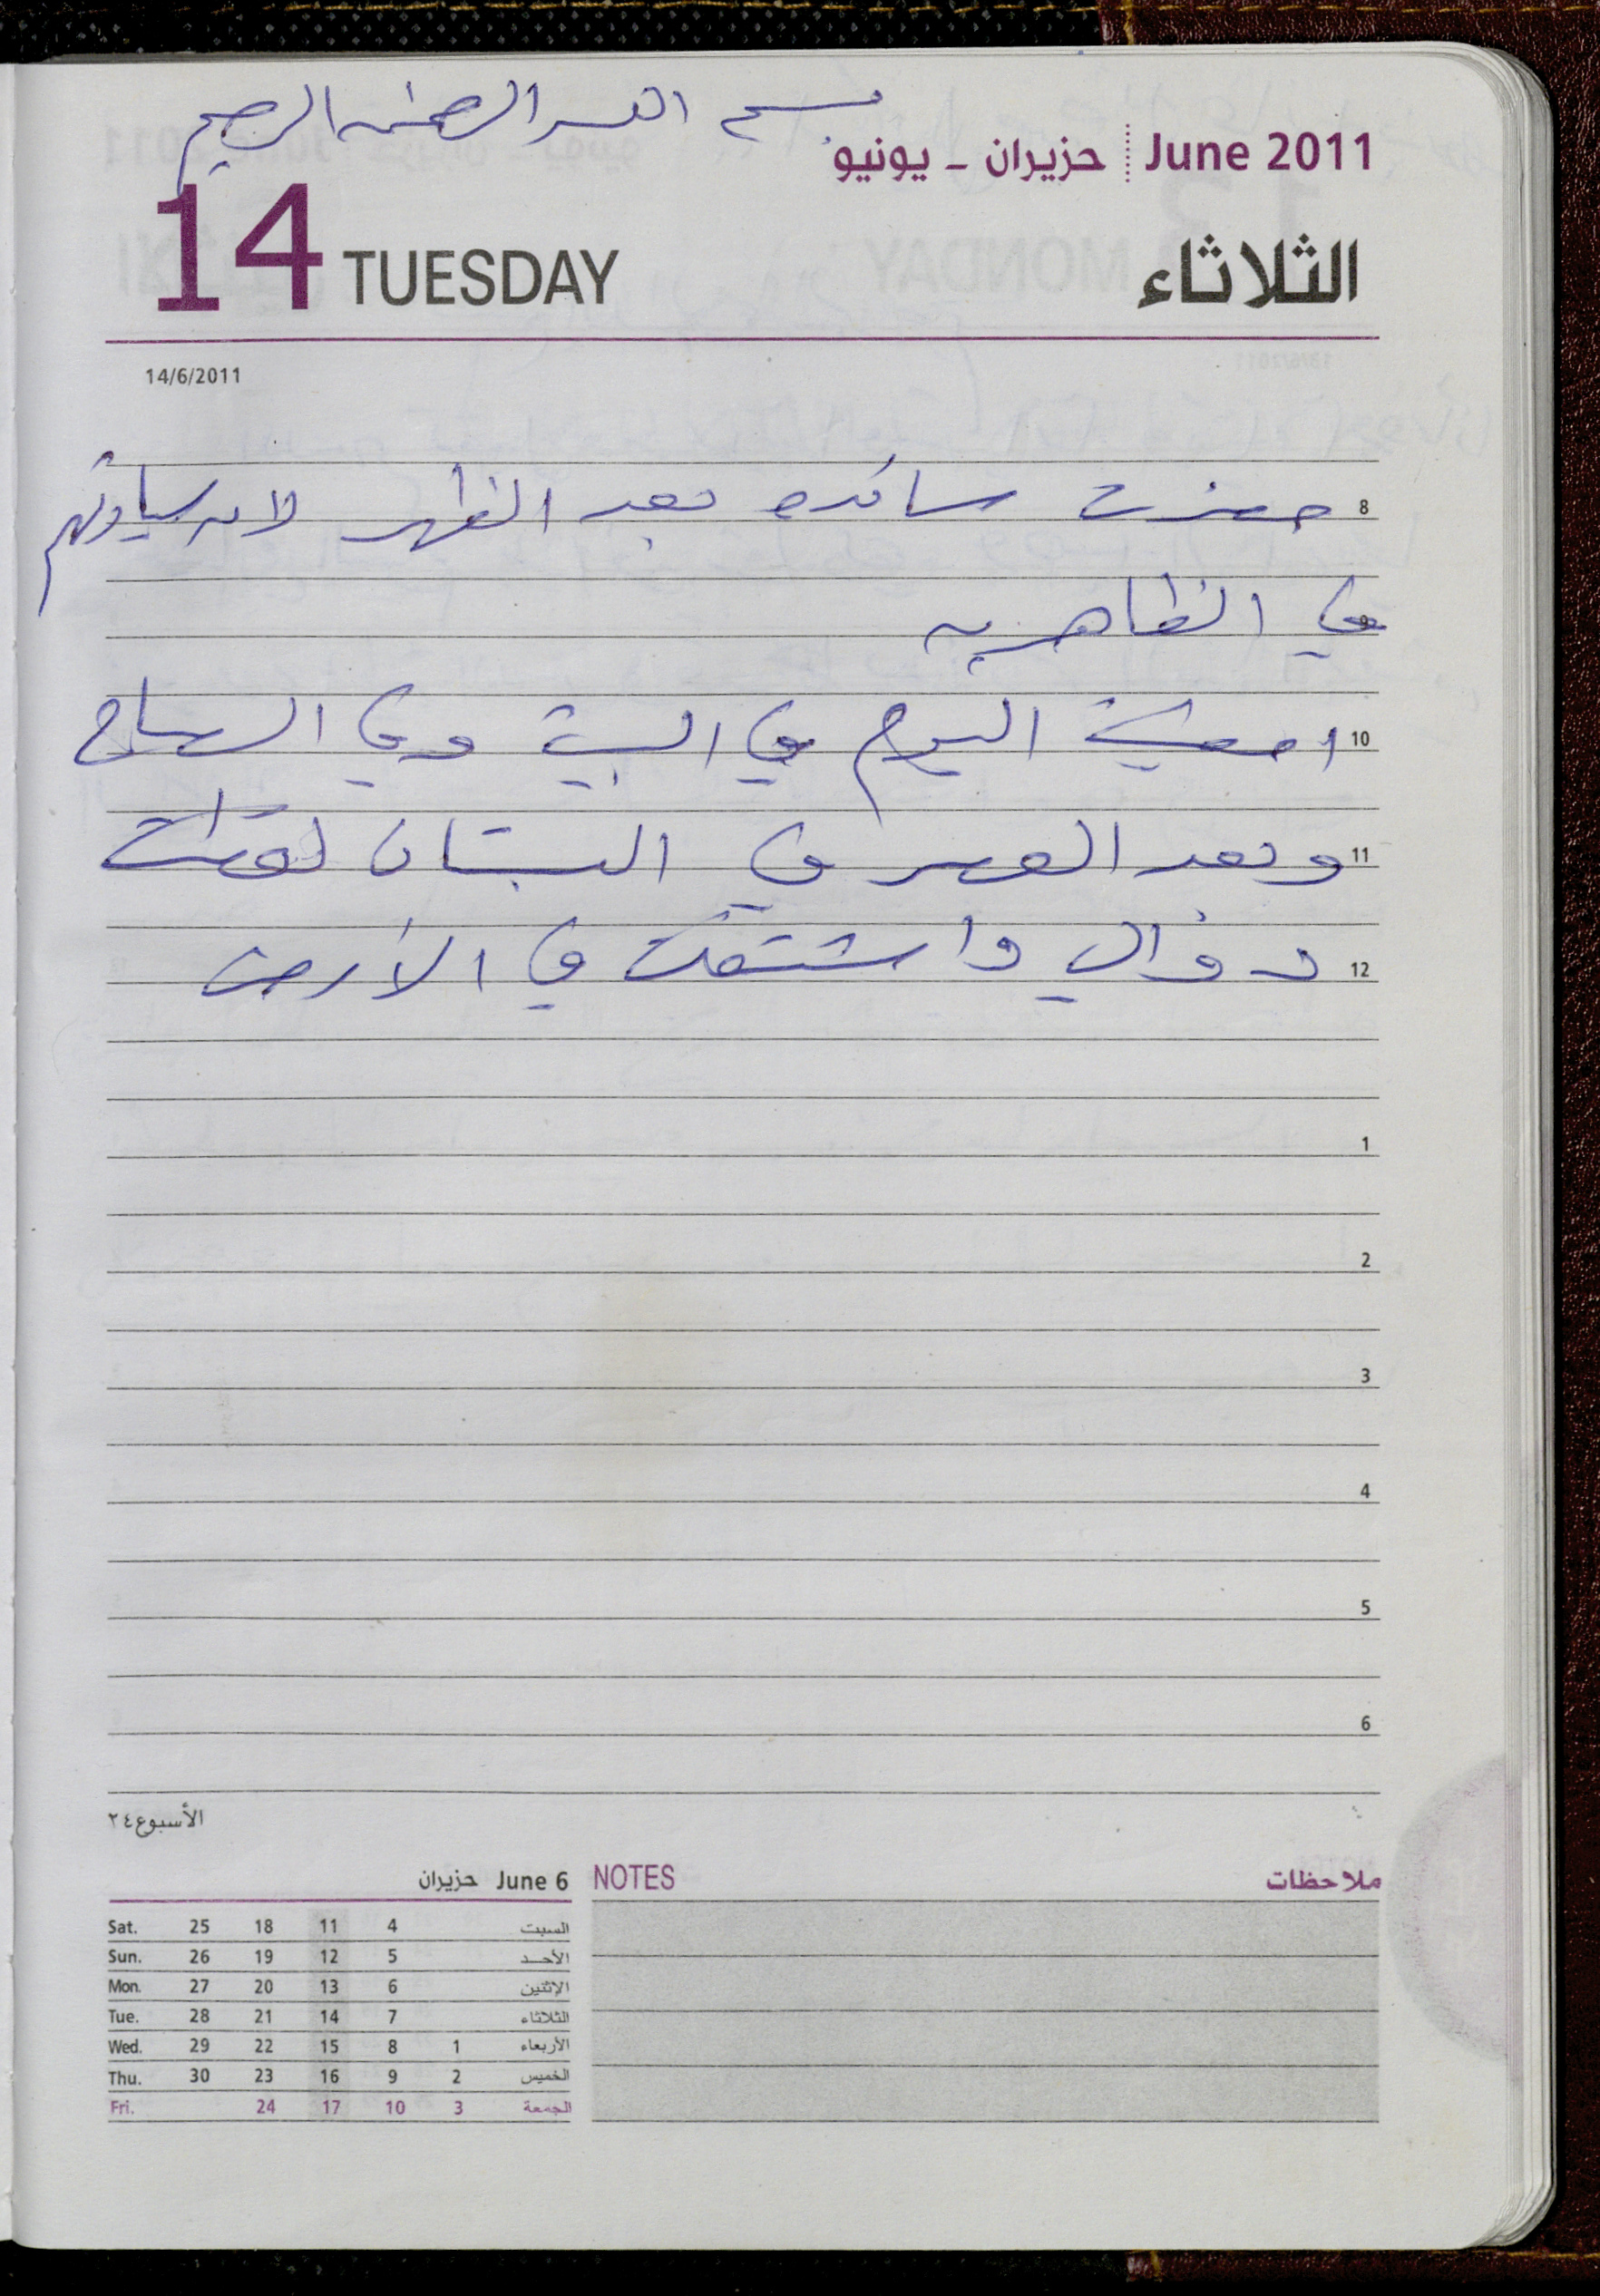 بسم الله الرحمن الرحيم
حزيران - يونيو June 2011
14 TUESDAY الثلاثاء
14/6/2011
8 حضرت سائده بعد الظهر لان سيارتهم
في الظاهريه
10 امضيت اليوم في البيت وفي الصباح
11 وبعد العصر في البستان لقطت
12 دوالي واشتغلت في الأرض
1
2
3
4
5
6
الأسبوع ٢٤
June 6 حزيران
Sat. 25 18 11 4 السبت
Sun. 26 19 12 5 الأحد
Mon. 27 20 13 6 الإثنين
Tue. 28 21 14 7 الثلاثاء
Wed. 29 22 15 8 1 الأربعاء
Thu. 30 23 16 9 2 الخميس
Fri. 24 17 10 3 الجمعة
NOTES ملاحظات